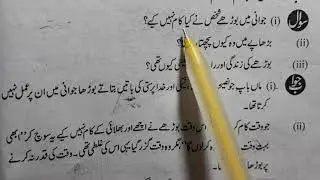 سوال (i) جوانی میں بوڑھے شخص نے کیا کام نہیں کیے؟
(ii) بڑھاپے میں وہ کیوں پچھتا
(iii) بوڑھے کی زندگی اور را کیوں تھی؟
جواب (i) ماں باپ جو نصیحت و خدا پرستی کی باتیں بتاتے بوڑھا جوانی میں ان پر عمل نہیں
کرتا تھا۔
(ii) جو وقت کام کر اس وقت بوڑھے نے اچھے اور بھلائی کے کام نہیں کیے یہ سوچ کر "ابھی
بہت وقت کرلوں گا" مگر وہ وقت گزر گیا۔ یہی اس کی غلطی تھی۔ وقت کی قدر نہ کرنے
پر بوڑھا